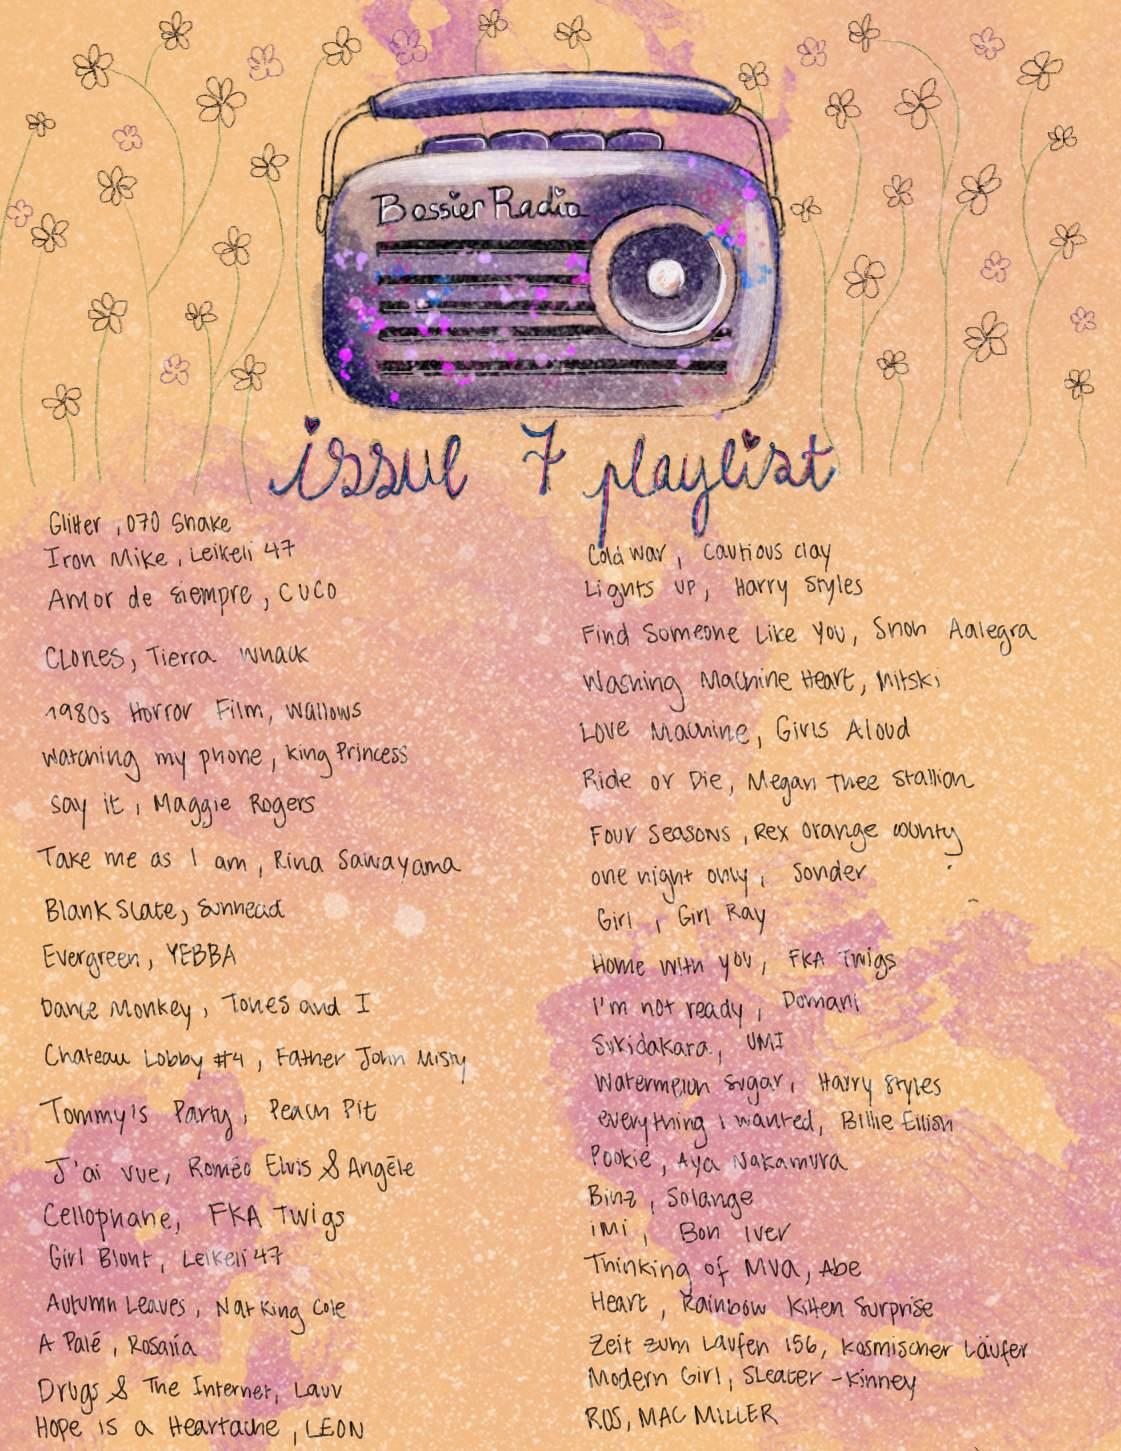 Bossier Radio
issue 7 playlist
Glitter, 070 Shake
Iron Mike, Leikeli 47
Amor de siempre, CUCO
Clones, Tierra Whack
1980s Horror Film, Wallows
watching my phone, king Princess
say it, Maggie Rogers
Take me as I am, Rina Sawayama
Blank Slate, Sunhead
Evergreen, YEBBA
Dance Monkey, Tones and I
Chateau Lobby #4, Father John Misty
Tommy's Party, Peach Pit
J'ai vue, Roméo Elvis & Angèle
Cellophane, FKA Twigs
Girl Blunt, Leikeli 47
Autumn Leaves, Nat King Cole
A Palé, Rosalía
Drugs & The Internet, Lauv
Hope is a Heartache, LEON
Cold War, Cautious Clay
Lights Up, Harry Styles
Find Someone Like You, Snoh Aalegra
Washing Machine Heart, Mitski
Love Machine, Girls Aloud
Ride or Die, Megan Thee Stallion
Four Seasons, Rex Orange County
one night only, Sonder
Girl, Girl Ray
Home with you, FKA Twigs
I'm not ready, Domani
Sukidakara, UMI
Watermelon Sugar, Harry Styles
everything i wanted, Billie Eilish
Pookie, Aya Nakamura
Binz, Solange
iMi, Bon Iver
Thinking of MVA, Abe
Heart, Rainbow Kitten Surprise
Zeit zum Laufen 156, Kosmischer Läufer
Modern Girl, Sleater-Kinney
ROS, MAC MILLER